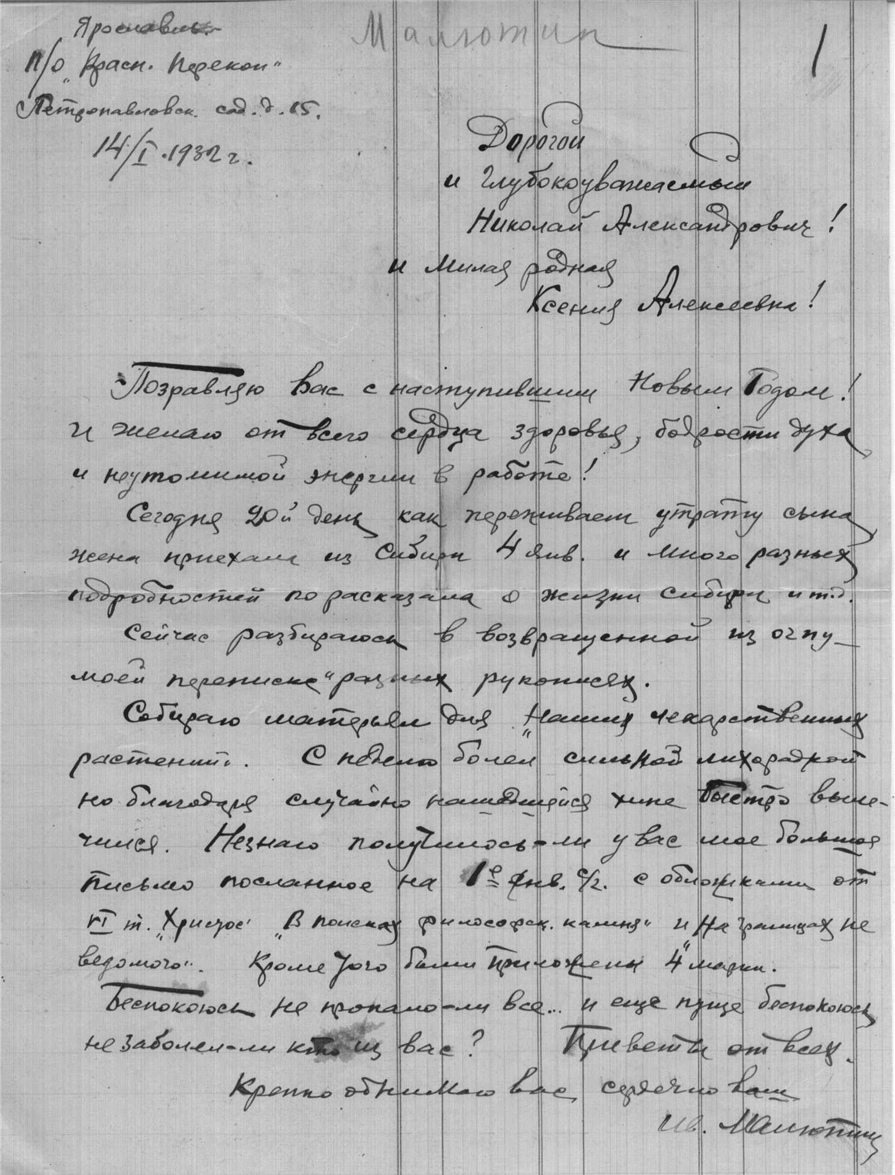 Малютин
1
Ярославль
п/о "Красн. Перекоп"
Петропавловск. сад. д. 15.
14/I 1932 г.
Дорогой
и Глубокоуважаемый
Николай Александрович!
и милая родная
Ксения Алексеевна!
Поздравляю Вас с наступившим Новым Годом!
и желаю от всего сердца здоровья, бодрости духа
и неутомимой энергии в работе!
Сегодня 20й день как переживаем утрату сына
жена приехала из Сибири 4 янв. и много разных
подробностей порасказала о жизни Сибири и т.д.
Сейчас разбираюсь в возвращенной из огпу
моей переписке и разных рукописях.
Собираю матерьял для "Наших лекарственных
растений". С неделю болел сильной лихорадкой
но благодаря случайно нашедшейся хине быстро выле-
чился. Незнаю получилось-ли у вас мое большое
письмо посланное на 1е янв. с/г. с обложками от
VI т. "Христос" "В поисках философск. камня" и На границах не
ведомого". Кроме того были приложены 4 марки.
Беспокоюсь не пропало-ли все... и еще пуще беспокоюсь
не заболел-ли кто из вас? Приветы от всех.
Крепко обнимаю вас, сердечно ваш
Ив. Малютин